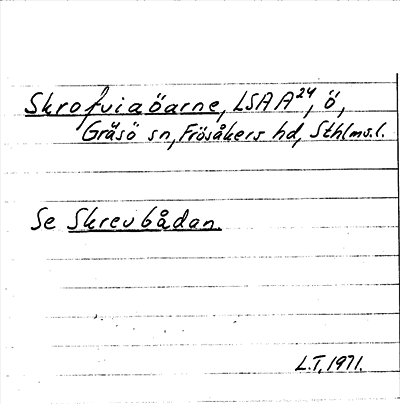 Skrofviaöarne, LSAA24, ö,
Gräsö sn, Frösåkers hd, Sthlms.l.
Se Skrevbådan.
L.T. 1971.